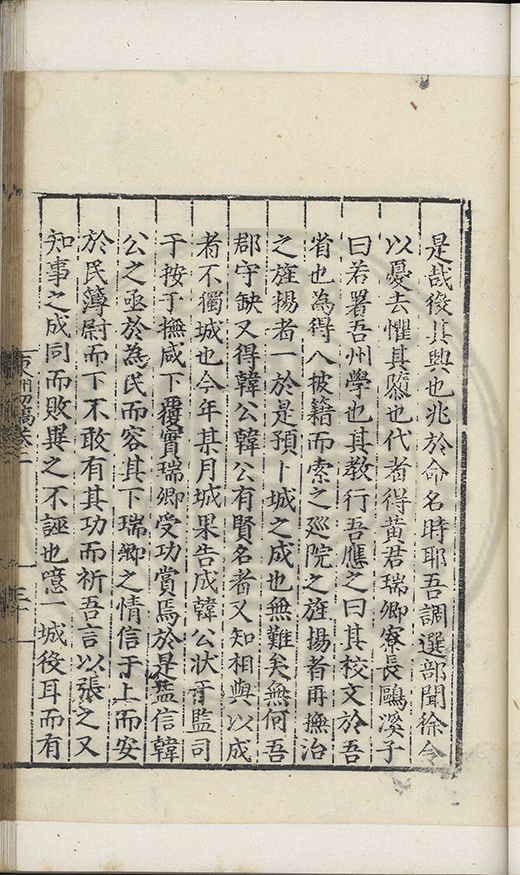 是哉後其興也兆於命名時耶吾調選部聞徐令
以憂去懼其隳也代者得黃君瑞卿寮長鷗溪子
曰若署吾州學也其教行吾應之曰其校文於吾
省也為得八被籍而索之廵院之旌揚者再撫治
之旌揚者一於是預卜城之成也無難矣無何吾
郡守缺又得韓公韓公有賢名者又知相與以成
者不獨城也今年某月城果告成韓公狀于監司
于按于撫咸下覆實瑞卿受功賞焉於是監信韓
公之亟於為民而容其下瑞卿之情信于上而安
於民簿尉而下不敢有其功而祈吾言以張之又
知事之成同而敗異之不誣也噫一城役耳而有